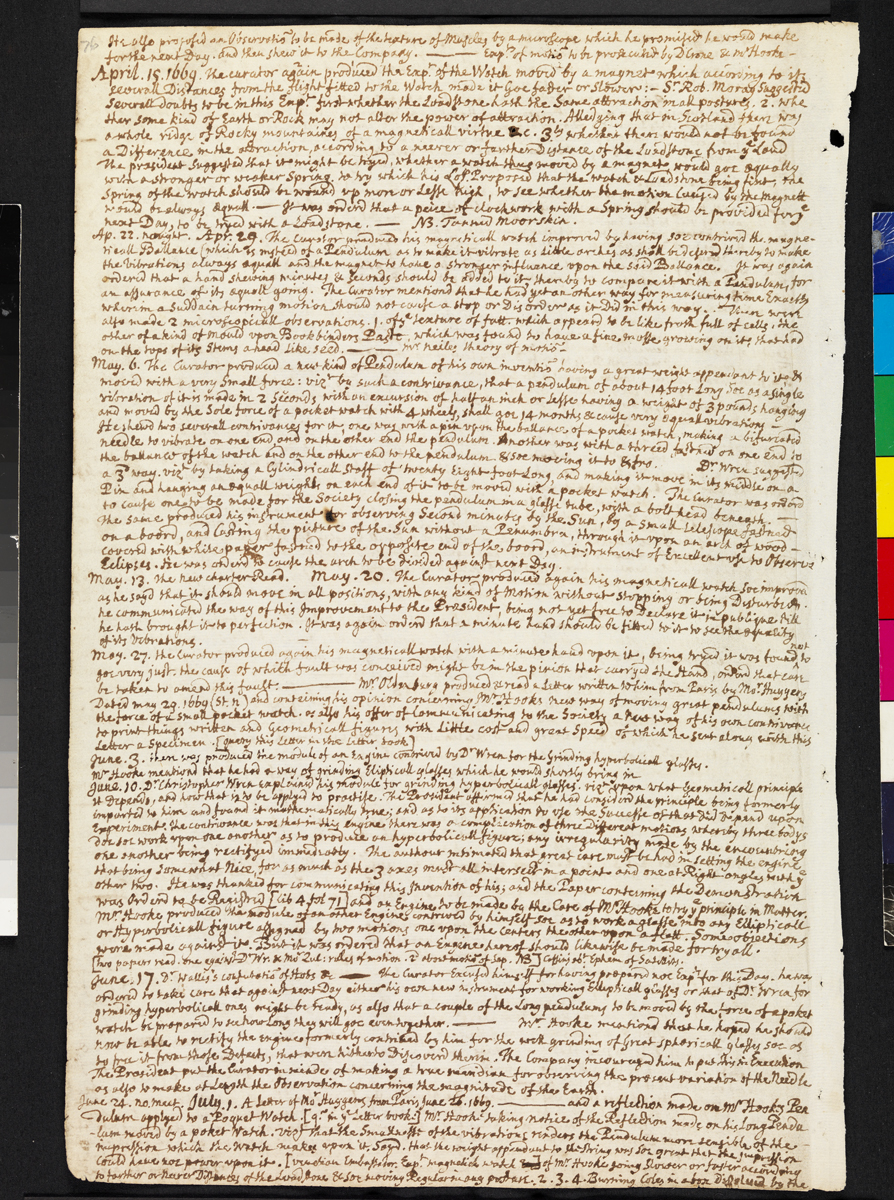 He also proposed an Observatio to be made of the texture of Muscles by a microscope which he promised he would make
for the next Day. and then shew it to the Company. ——— Exp. of motio to be prosecuted by D Crone & mr Hooke -
April. 15. 1669. The curator again produced the Exp. of the Watch moved by a magnet which according to its
severall Distances from the flight fitted to the Watch made it Goe faster or Slower: - Sr. Rob. Moray suggested
severall doubts to be in this Exp. first whether the Loadstone hath the same attraction in all postures. 2. Whe
ther some kind of Earth or Rock may not alter the power of attraction. Alledging that in Scotland there was
a whole ridge of Rocky mountaines of a magneticall virtue &c. 3ly whether there would not be found
a Difference in the attraction, according to a neerer or farther Distance of the Loadstone from ye Land
The president suggested that it might be tryed, whether a watch thus moved by a magnet would goe equally
with a stronger or weaker Spring. to try which his Losp Proposed that the watch & Loadstone being fixt, the
Spring of the watch should be wound up more or Lesse high, to see whether the motion caused by the Magnett
would be always æquall - It was ordered that a peice of clockwork with a Spring should be provided for ye
next Day, to be tryed with a Loadstone. —— NB. Tanned Moorskin.
Ap. 22. nought. Apr. 29. The Curator produced his magneticall watch improved by having soe contrived the magne-
ticall Ballance (which is instead of a Pendulum as to make it vibrate as Little arches as shall be desired thereby to make
the Vibrations always æquall and the magnet to have a stronger influence upon the said Ballance. It was again
ordered that a hand shewing minutes & Seconds should be added to it, thereby to compare it with a Pendulum, for
an assurance of its æquall going. The Curator mentiond that he had yet an other way for measuring time Exactly
wherin a Suddain turning motion should not cause a stop or Disorder as it Did in this way. Then were
also made 2 microscopicall observations. 1. of ye texture of fatt. which appeard to be like froth full of cells. the
other of a kind of Mould upon Bookbinders Paste, which was found to have a fine mosse growing on its that had
on the tops of its Stems a head Like seed. ——— mr Neiles theory of motio -
May. 6. The Curator produced a new kind of Pendulum of his own inventio having a great weight appendant to it &
moved with a very Small force: vizt by such a contrivance, that a pendulum of about 14 foot Long soe as a single
vibration of it is made in 2 Seconds, with an excursion of half an inch or Lesse having a weight of 3 pounds hanging
and moved by the Sole force of a pocket watch with 4 wheels, shall goe 14 months & cause very equall vibrations -
He shewd two severall contrivances for it, one was with a pin upon the ballance of a pocket watch, making a bifurcated
needle to vibrate on one end, and on the other end the pendulum. Another was with a thread fastned on one end to
the ballance of the watch and on the other end to the pendulum & soe moving it to & fro. Dr. Wren suggested
a 3d way. vizt by taking a Cylindricall Staff of twenty Eight foot Long, and making it move in its middle on a
Pin and hanging an æquall weight on each end of it to be moved with a pocket watch. The Curator was ordrd
to cause one to be made for the Society closing the pendulum in a glasse tube, with a bolt head beneath. -
The same produced his instrument for observing Second minutes by the Sun, by a Small telescope fastned
on a board, and Casting the picture of the Sun without a Penumbra, through it upon an arch of wood -
covered with white paper fastned to the opposite end of the board, an instrument of Excellent use to Observe
Eclipses. He was ordrd to cause the arch to be divided against next Day.
May. 13. The new charter Read. May. 20. The Curator produced again his magneticall watch soe improvd
as he sayd that it should move in all positions, with any kind of Motion without stopping or being Disturb'd.
he communicated the way of this Improvement to the President, being not yet free to Declare it in publique till
he hath brought it to perfection. It was again orderd that a minute hand should be fitted to it to see the equality
of its vibrations.
May. 27. The curator produced again his magneticall watch with a minute hand upon it, being tryed it was found not to
goe very just. the cause of which fault was conceived might be in the pinion that carryed the Hand, ordrd that care
be taken to amend this fault. ——— Mr. Oldenburg produced & read a Letter written to him from Paris by Mor. Huygens
Dated may 29. 1669 (St. n.) and containing his opinion concerning Mr. Hooks new way of moving great pendulums with
the force of a small pocket watch. as also his offer of Communicating to the Society a New way of his own contrivance
to print things written and Geometricall figures with Little cost and great Speed of which he sent along with this
Letter a Specimen. [query this Letter in the Letter book]
June. 3. there was produced the module of an Engine contrived by Dr Wren for the Grinding hyperbolicall glasses.
Mr Hooke mentiond that he had a way of grinding Ellipticall glasses which he would shortly bring in
June. 10. Dr. Christopher Wren Explaind his module for grinding hyperbolicall glasses. vizt upon what Geometricall principle
it Depends, and how that is to be applyd to practise. The President affirmed that he had considerd the principle being formerly
imparted to him and found it mathematically true; and as to its application to use the successe of that Did Depend upon
Experiments. the contrivance was that in this Engine there was a complication of three Different motions wherby three bodys
Doe soe work upon one another as to produce an hyperbolicall figure; any irregularity made by the encountring
one another being rectifyed immediatly. The author intimated that great care must be had in setting the engine
that being somewhat nice, for as much as the 3 axes must all intersect in a point and one at Right angles with ye
other two. He was thanked for communicating this Invention of his; and the Paper conteining the Demonstration
was Ordred to be Registred [lib 4 fol 71] and an Engine to be made by the Care of Mr. Hooke to try ye principle in Matter.
Mr. Hooke produced the module of an other Engine contrived by himself soe as to work a glasse into any Ellipticall
or Hyperbolicall figure assigned by two motions one upon the Centers the other upon a flatt. Some objections
were made against it. But it was ordered that an Engine hereof should likewise be made for tryall.
[two papers read. One against Dr. Wr. & Mor Zul: rules of motion. 2 about motio of sap. NB] Cassinis Ephem of Satellits.
June, 17. Dr. Wallis's confutatio of Hobs & —— The Curator Excused himself for having prepared noe Expt for this Day. he was
ordered to take care that against next Day either his own new instrument for working Ellipticall glasses or that of Dr. Wren for
grinding hyperbolicall ones might be ready, as also that a couple of the Long pendulums to be moved by the force of a pocket
watch be prepared to see how Long they will goe even together. ——— Mr. Hooke mentiond that he hoped he should
now be able to rectify the Engine formerly contrived by him for the well grinding of Great sphericall glasses, soe as
to free it from those Defects, that were hitherto Discoverd therin. The Company incouraged him to put this in Execution
The President put the Curator in minde of making a true meridian for observing the present variation of the Needle
as also to make at Length the Observation concerning the magnitude of the Earth.
June 24. no. meet. July. 1. A Letter of Mor. Huygens from Paris June 26. 1669. ——— and a reflection made on Mr. Hooks Pen
dulum applyed to a Pocket Watch. [q. in ye Letter book:] Mr. Hooke taking notice of the Reflection made on his Long Pendu
-lum moved by a poket Watch. vizt that the Smallness of the vibrations renders the Pendulum more sensible of the
impression which the Watch makes upon it, Sayd. that the weight appendant to the String was soe great that the impression
could have noe power upon it. [Venetian Embassador. Expt. magnetick watch of Mr. Hooke going slower or faster according
to farther or neerer Distances of the Loadstone & soe moving Regular in any posture. 2. 3. 4. Burning Coles in a box Dissolved by the